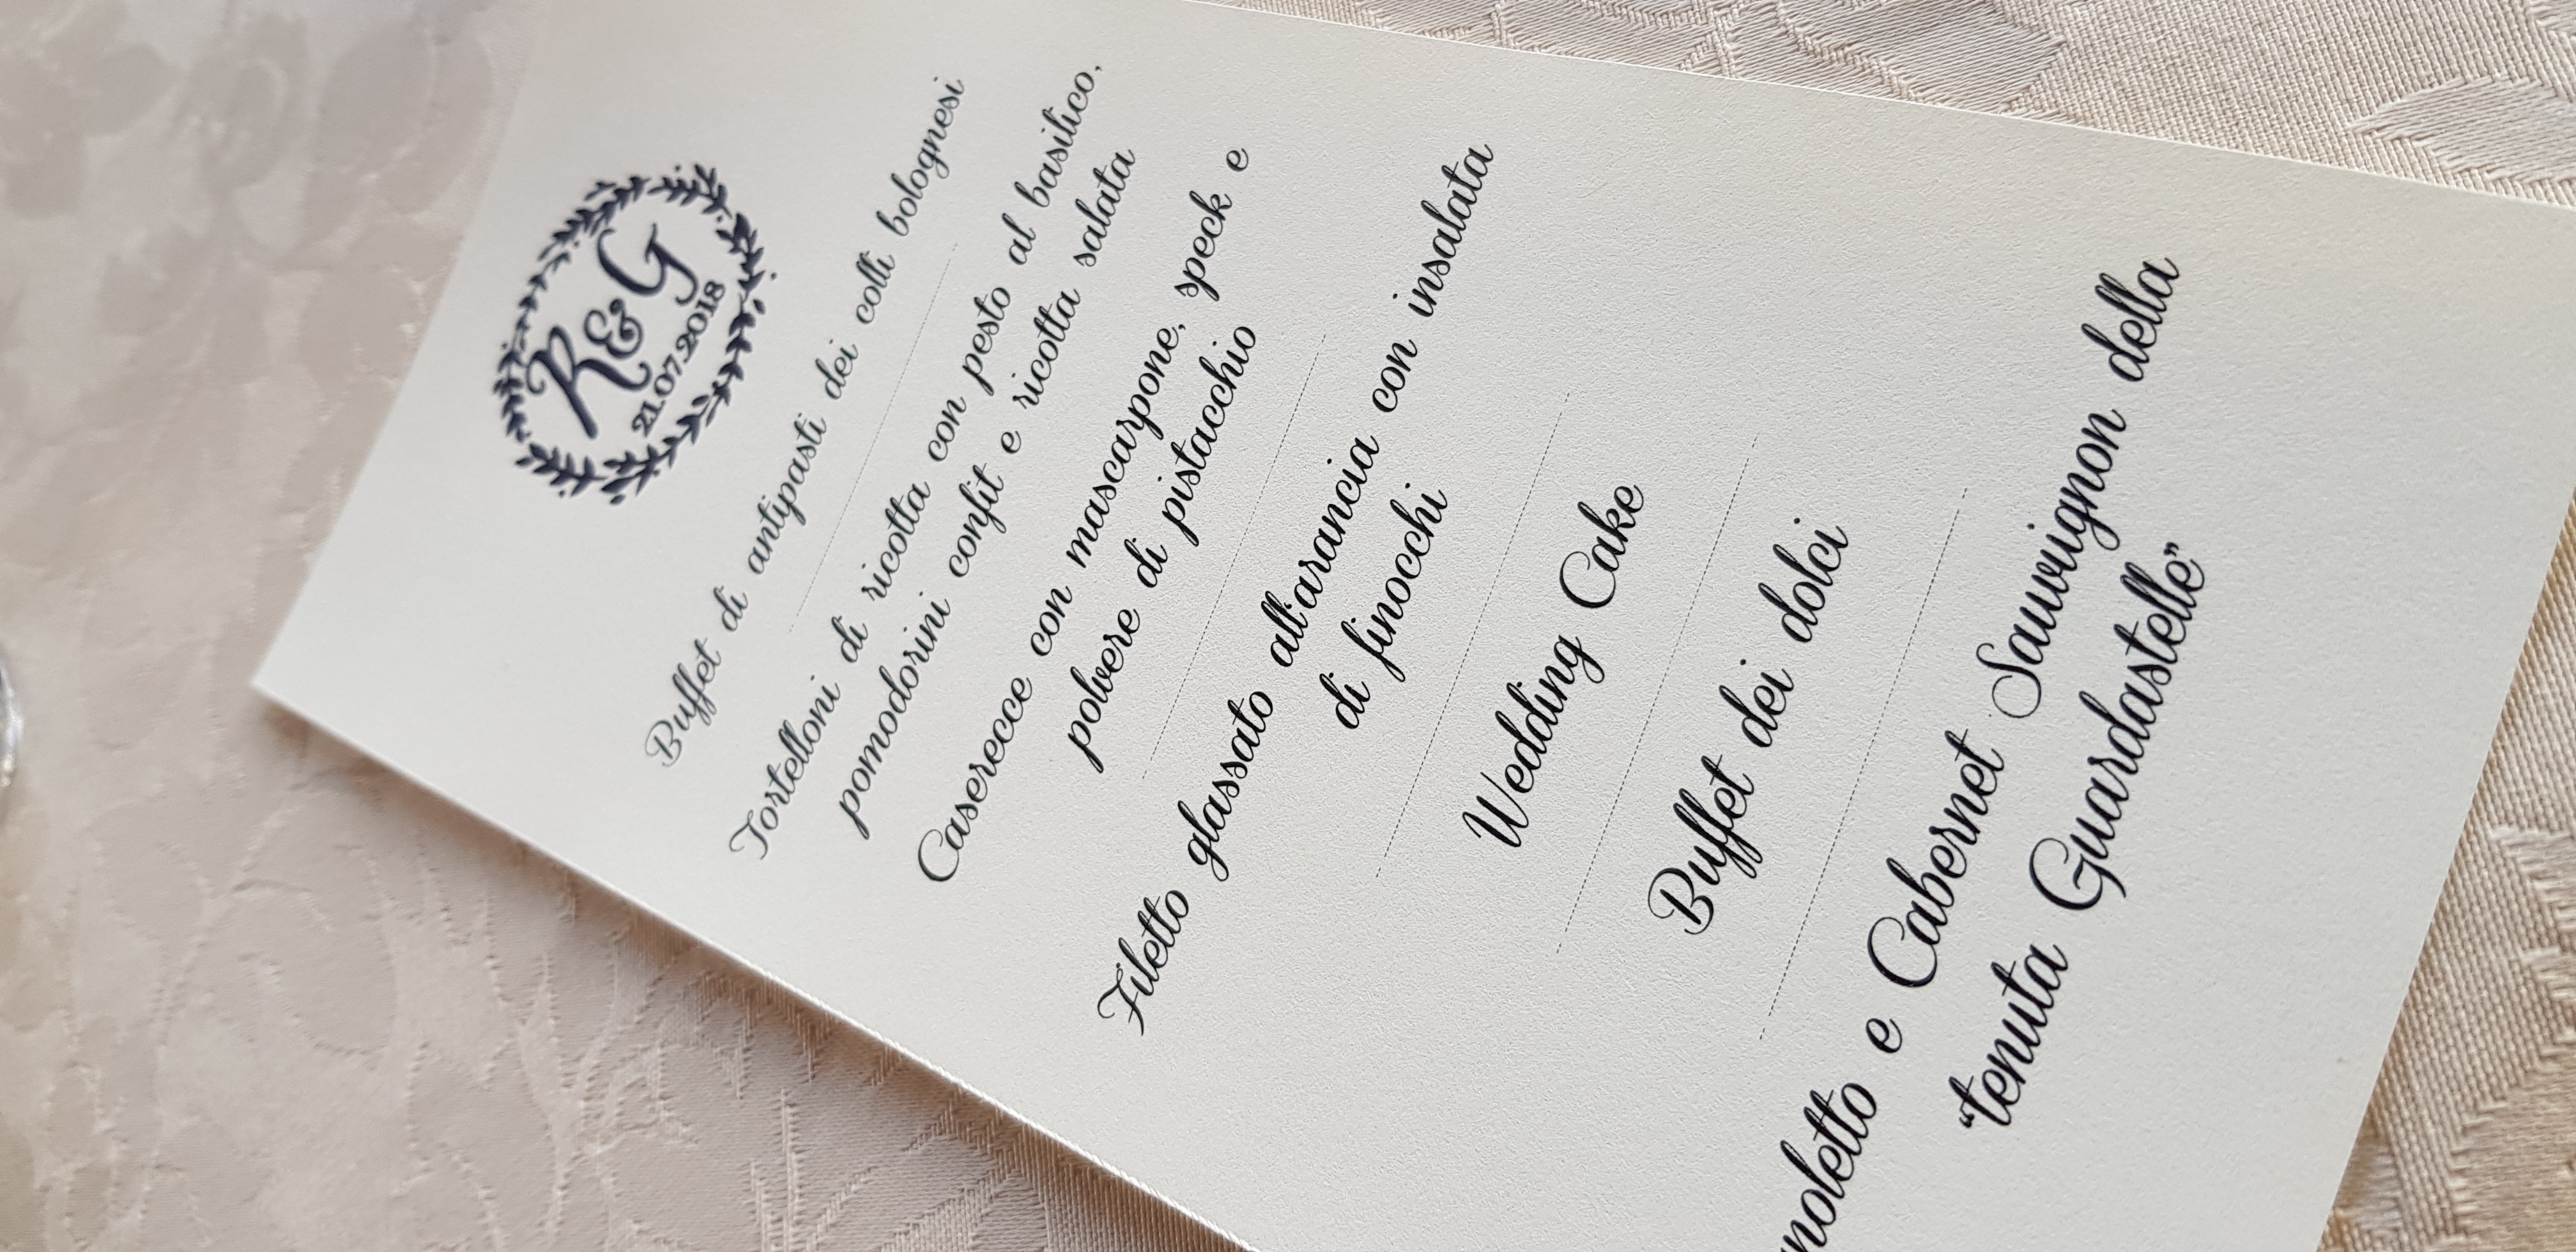 R&G
21.07.2018
Buffet di antipasti dei colli bolognesi
Tortelloni di ricotta con pesto al basilico,
pomodorini confit e ricotta salata
Caserecce con mascarpone, speck e
polvere di pistacchio
Filetto glassato all'arancia con insalata
di finocchi
Wedding Cake
Buffet dei dolci
e Cabernet Sauvignon della
“tenuta Guardastelle”